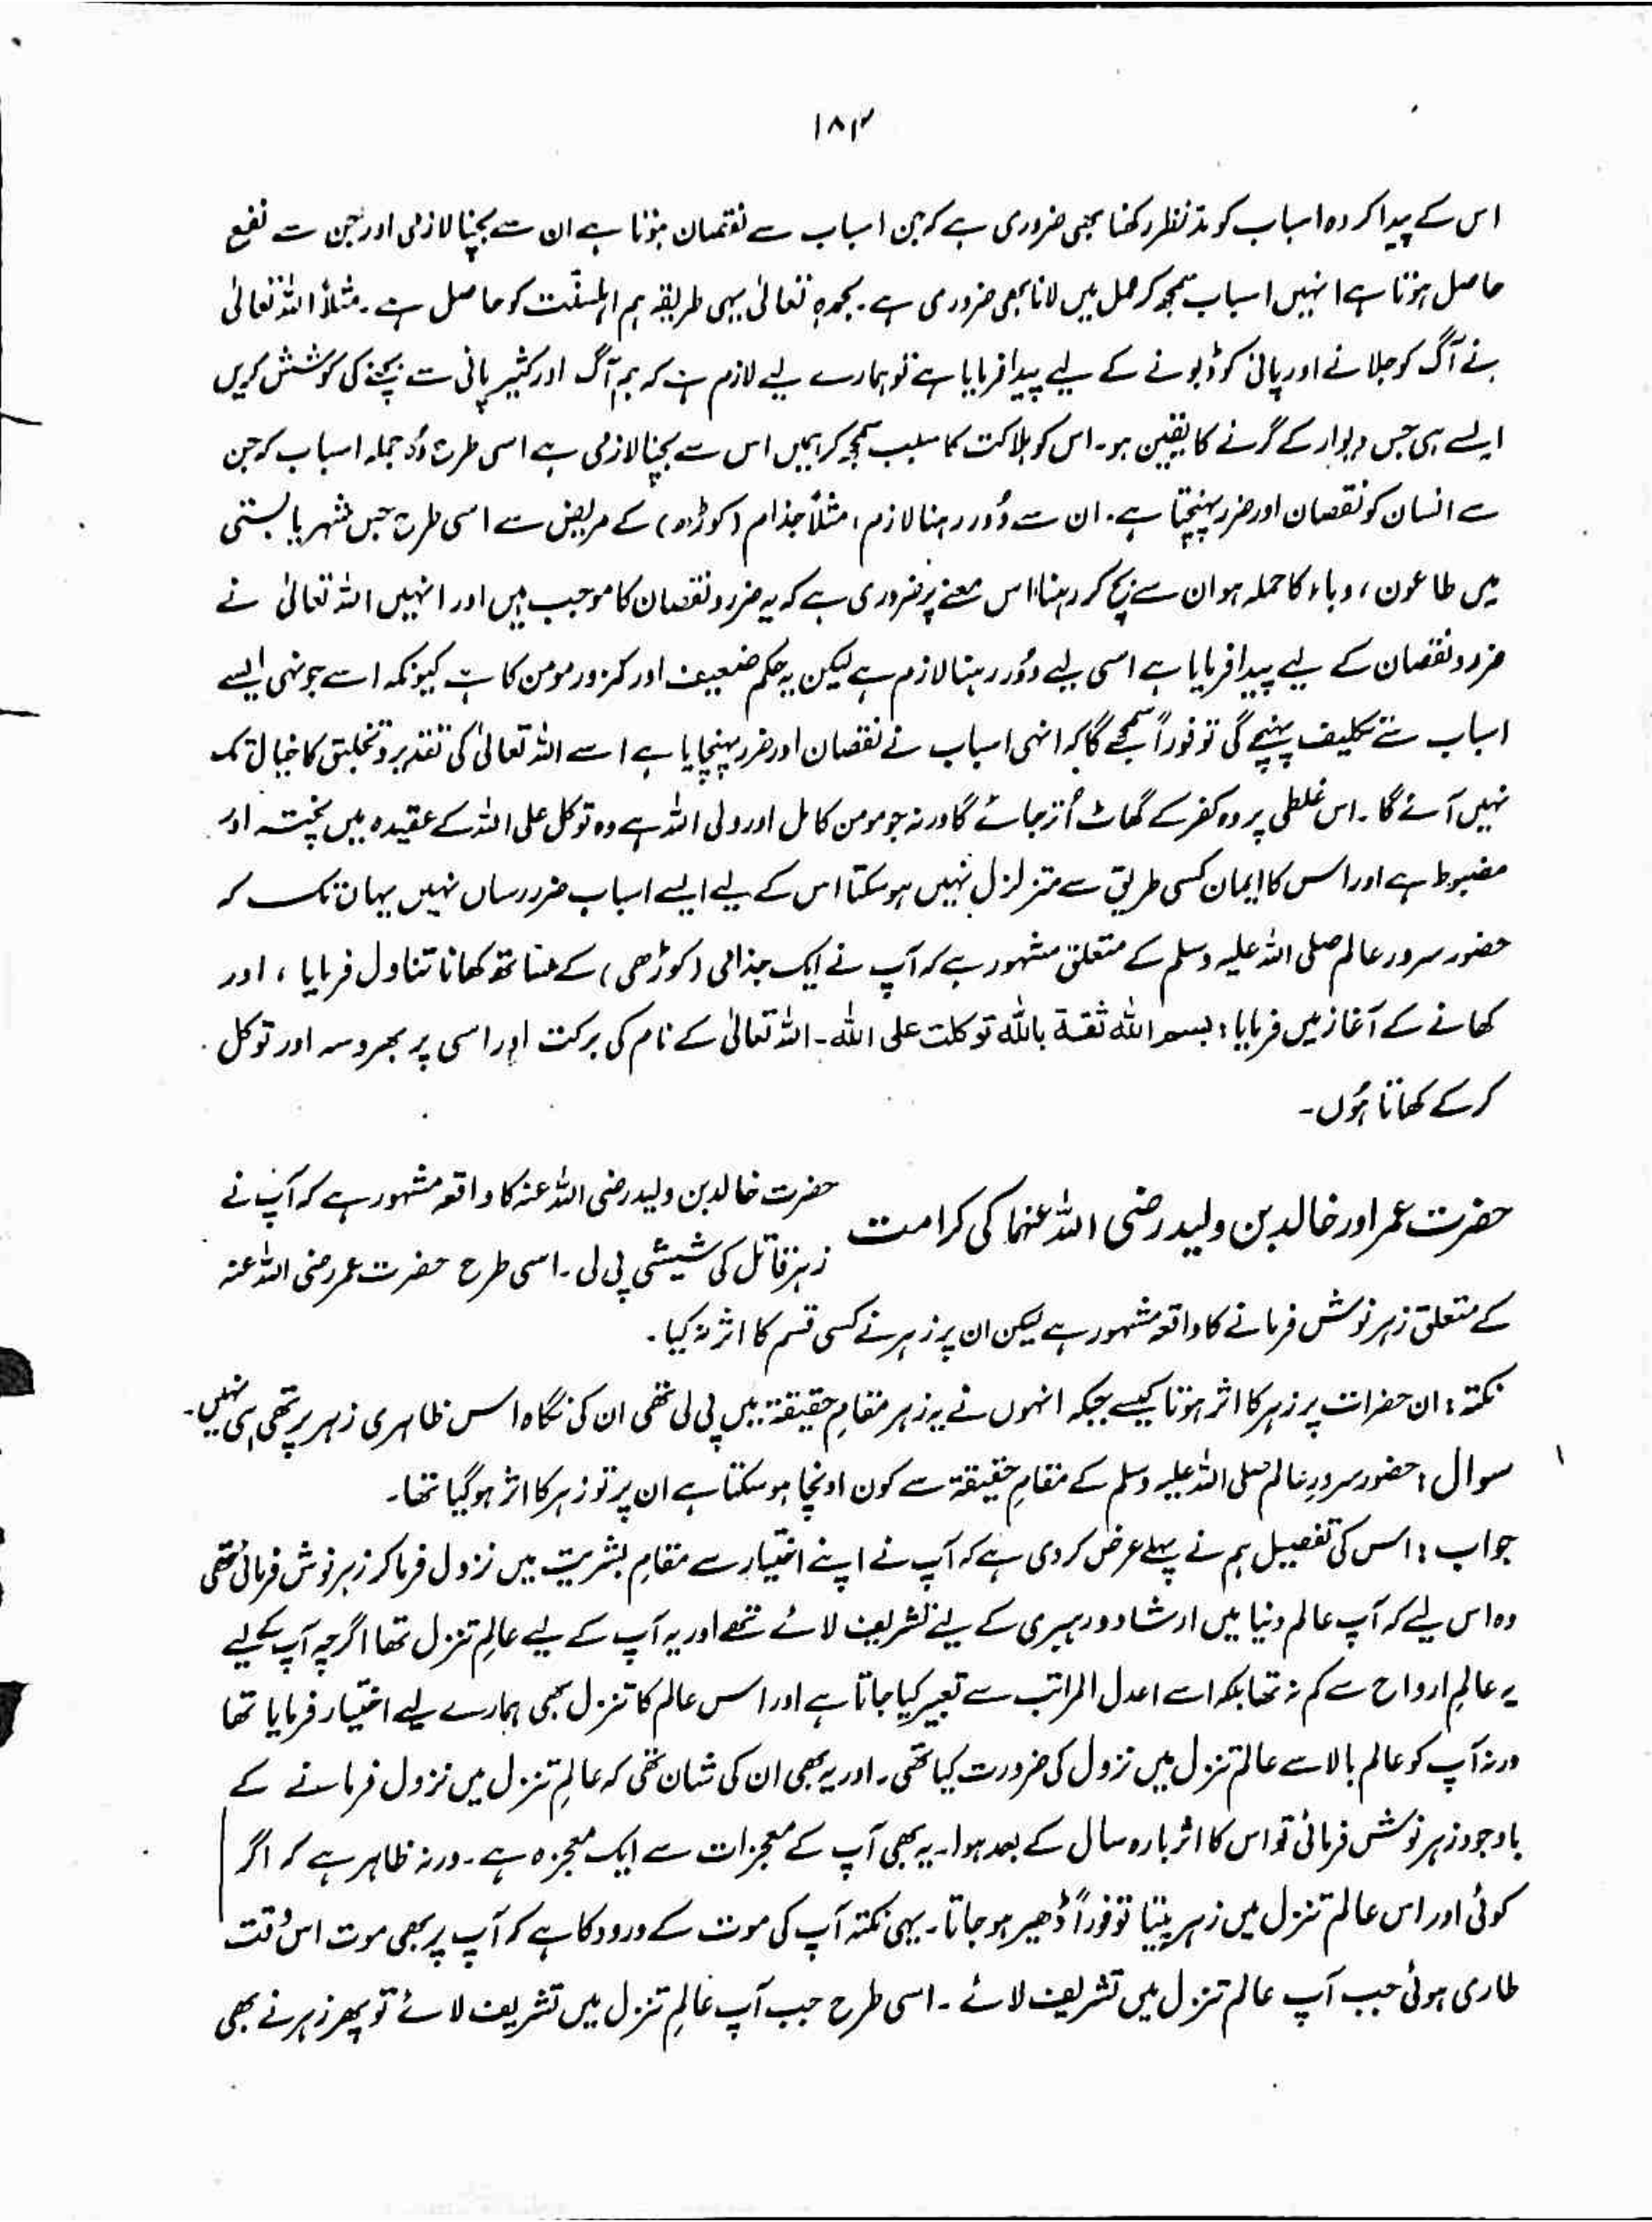 ۱۸۳
اس کے پیدا کردہ اسباب کو مدِّنظر رکھنا بھی ضروری ہے کہ جن اسباب سے نقصان ہوتا ہے ان سے بچنا لازمی اور جن سے نفع
حاصل ہوتا ہے انہیں اسباب سمجھ کر عمل میں لانا بھی ضروری ہے۔ بحمدہٖ تعالیٰ یہی طریقہ ہم اہلسنّت کو حاصل ہے۔ مثلاً اللہ تعالیٰ
نے آگ کو جلانے اور پانی کو ڈبونے کے لیے پیدا فرمایا ہے تو ہمارے لیے لازم ہے کہ ہم آگ اور کثیر پانی سے بچنے کی کوشش کریں
ایسے ہی جس دیوار کے گرنے کا یقین ہو۔ اس کو ہلاکت کا سبب سمجھ کر ہمیں اس سے بچنا لازمی ہے اسی طرح وُہ جملہ اسباب کہ جن
سے انسان کو نقصان اور ضرر پہنچتا ہے۔ ان سے دُور رہنا لازم، مثلاً جذام (کوڑھ) کے مریض سے اسی طرح جس شہر یا بستی
میں طاعون، وباء کا حملہ ہو ان سے بچ کر رہنا اس معنے پر ضروری ہے کہ یہ ضرر و نقصان کا موجب ہیں اور انہیں اللہ تعالیٰ نے
ضرر و نقصان کے لیے پیدا فرمایا ہے اسی لیے دُور رہنا لازم ہے لیکن یہ حکم ضعیف اور کمزور مومن کا ہے کیونکہ اسے جونہی ایسے
اسباب سے تکلیف پہنچے گی تو فوراً سمجھے گا کہ انہی اسباب نے نقصان اور ضرر پہنچایا ہے اسے اللہ تعالیٰ کی تقدیر و تخلیق کا خیال تک
نہیں آئے گا۔ اس غلطی پر وہ کفر کے گھاٹ اُتر جائے گا ورنہ جو مومن کامل اور ولی اللہ ہے وہ توکل علی اللہ کے عقیدہ میں پختہ اور
مضبوط ہے اور اس کا ایمان کسی طریق سے متزلزل نہیں ہو سکتا اس کے لیے ایسے اسباب ضرر رساں نہیں یہاں تک کہ
حضور سرور عالم صلی اللہ علیہ وسلم کے متعلق مشہور ہے کہ آپ نے ایک جذامی (کوڑھی) کے ساتھ کھانا تناول فرمایا، اور
کھانے کے آغاز میں فرمایا: بسم اللہ ثقة باللہ توکلت علی اللہ۔ اللہ تعالیٰ کے نام کی برکت اور اسی پر بھروسہ اور توکل
کر کے کھاتا ہُوں۔
حضرت عمر اور خالد بن ولید رضی اللہ عنہما کی کرامت
حضرت خالد بن ولید رضی اللہ عنہ کا واقعہ مشہور ہے کہ آپ نے
زہر قاتل کی شیشی پی لی۔ اسی طرح حضرت عمر رضی اللہ عنہ
کے متعلق زہر نوش فرمانے کا واقعہ مشہور ہے لیکن ان پر زہر نے کسی قسم کا اثر نہ کیا۔
نکتہ: ان حضرات پر زہر کا اثر ہوتا کیسے جبکہ انہوں نے یہ زہر مقامِ حقیقة میں پی لی تھی ان کی نگاہ اس ظاہری زہر پر تھی ہی نہیں۔
سوال: حضور سرورِ عالم صلی اللہ علیہ وسلم کے مقامِ حقیقة سے کون اونچا ہو سکتا ہے ان پر تو زہر کا اثر ہو گیا تھا۔
جواب: اس کی تفصیل ہم نے پہلے عرض کر دی ہے کہ آپ نے اپنے اختیار سے مقامِ بشریت میں نزول فرما کر زہر نوش فرمائی تھی
وہ اس لیے کہ آپ عالم دنیا میں ارشاد و رہبری کے لیے تشریف لائے تھے اور یہ آپ کے لیے عالمِ تنزل تھا اگرچہ آپ کے لیے
یہ عالمِ ارواح سے کم نہ تھا بلکہ اسے اعدل المراتب سے تعبیر کیا جاتا ہے اور اس عالم کا تنزل بھی ہمارے لیے اختیار فرمایا تھا
ورنہ آپ کو عالم بالا سے عالم تنزل میں نزول کی ضرورت کیا تھی۔ اور یہ بھی ان کی شان تھی کہ عالمِ تنزل میں نزول فرمانے کے
باوجود زہر نوش فرمائی تو اس کا اثر بارہ سال کے بعد ہوا۔ یہ بھی آپ کے معجزات سے ایک معجزہ ہے۔ ورنہ ظاہر ہے کہ اگر
کوئی اور اس عالم تنزل میں زہر پیتا تو فوراً ڈھیر ہو جاتا۔ یہی نکتہ آپ کی موت کے ورود کا ہے کہ آپ پر بھی موت اس وقت
طاری ہوئی جب آپ عالم تنزل میں تشریف لائے۔ اسی طرح جب آپ عالمِ تنزل میں تشریف لائے تو پھر زہر نے بھی